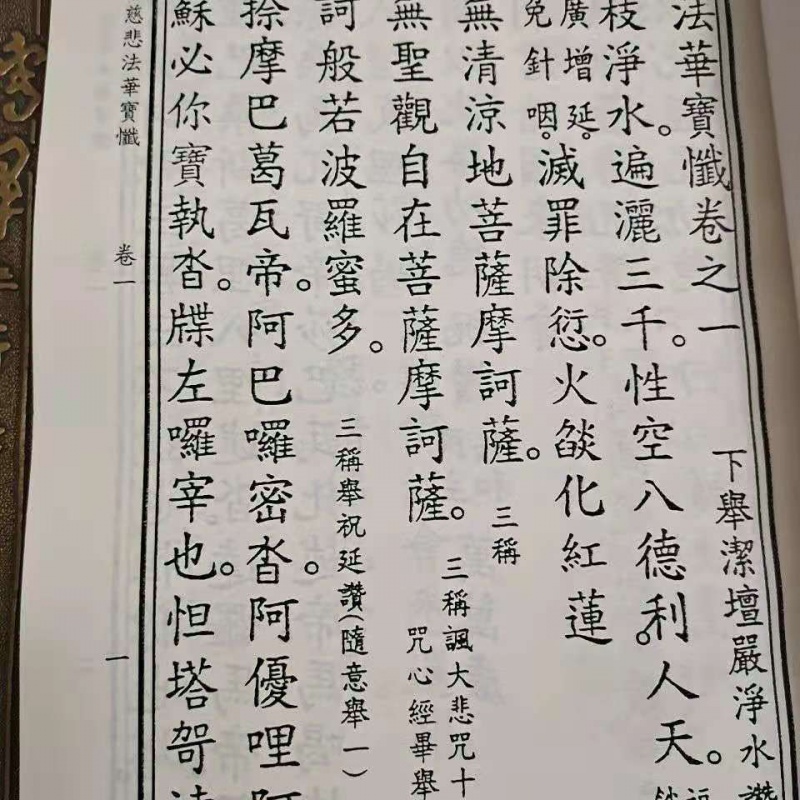 法華寶懺卷之一 下舉潔壇嚴淨水讚
枝淨水。遍灑三千。性空八德利人天。
廣增延。
免針咽。滅罪除愆。火燄化紅蓮
無清涼地菩薩摩訶薩。三稱
無聖觀自在菩薩摩訶薩。三稱諷大悲咒十
咒心經畢舉
訶般若波羅蜜多。三稱舉祝延讚(隨意舉一)
捺摩巴葛瓦帝。阿巴囉密沓。阿優哩阿
穌必你寶執沓。牒左囉宰也。怛塔哿
慈悲法華寶懺 卷一 一